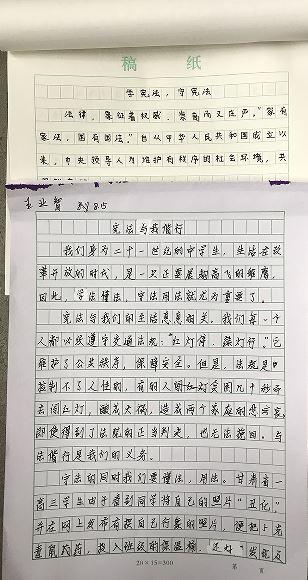 稿 纸
学宪法，守宪法
法律，象征着权威，崇高而又庄严。"家有
家法，国有国法。"自从中华人民共和国成立以
来，中央领导人为维护有秩序的社会环境，共
85
宪法与我偕行
我们身为二十一世纪的中学生，生活在改
革开放的时代，是一只正要展翅高飞的雄鹰，
因此，学法懂法，守法用法就尤为重要了。
宪法与我们的生活息息相关。我们每一个
人都必须遵守交通法规："红灯停，绿灯行。"它
维护了公共秩序，保障安全。但是，法规是
控制不了人性的，有的人因红灯要闯几十秒
去闯红灯，酿成大祸，造成两个家庭的悲
即使得到了法院的正当判决，也无法挽回。与
法偕行是我们的义务。
守法的同时我们要懂法，用法。甘肃省一
高三学生由于看到同学将自己的照片"丑化"
并在网上发布有损自己形象的照片，便把
班级的保温桶
20×15=300
第 页